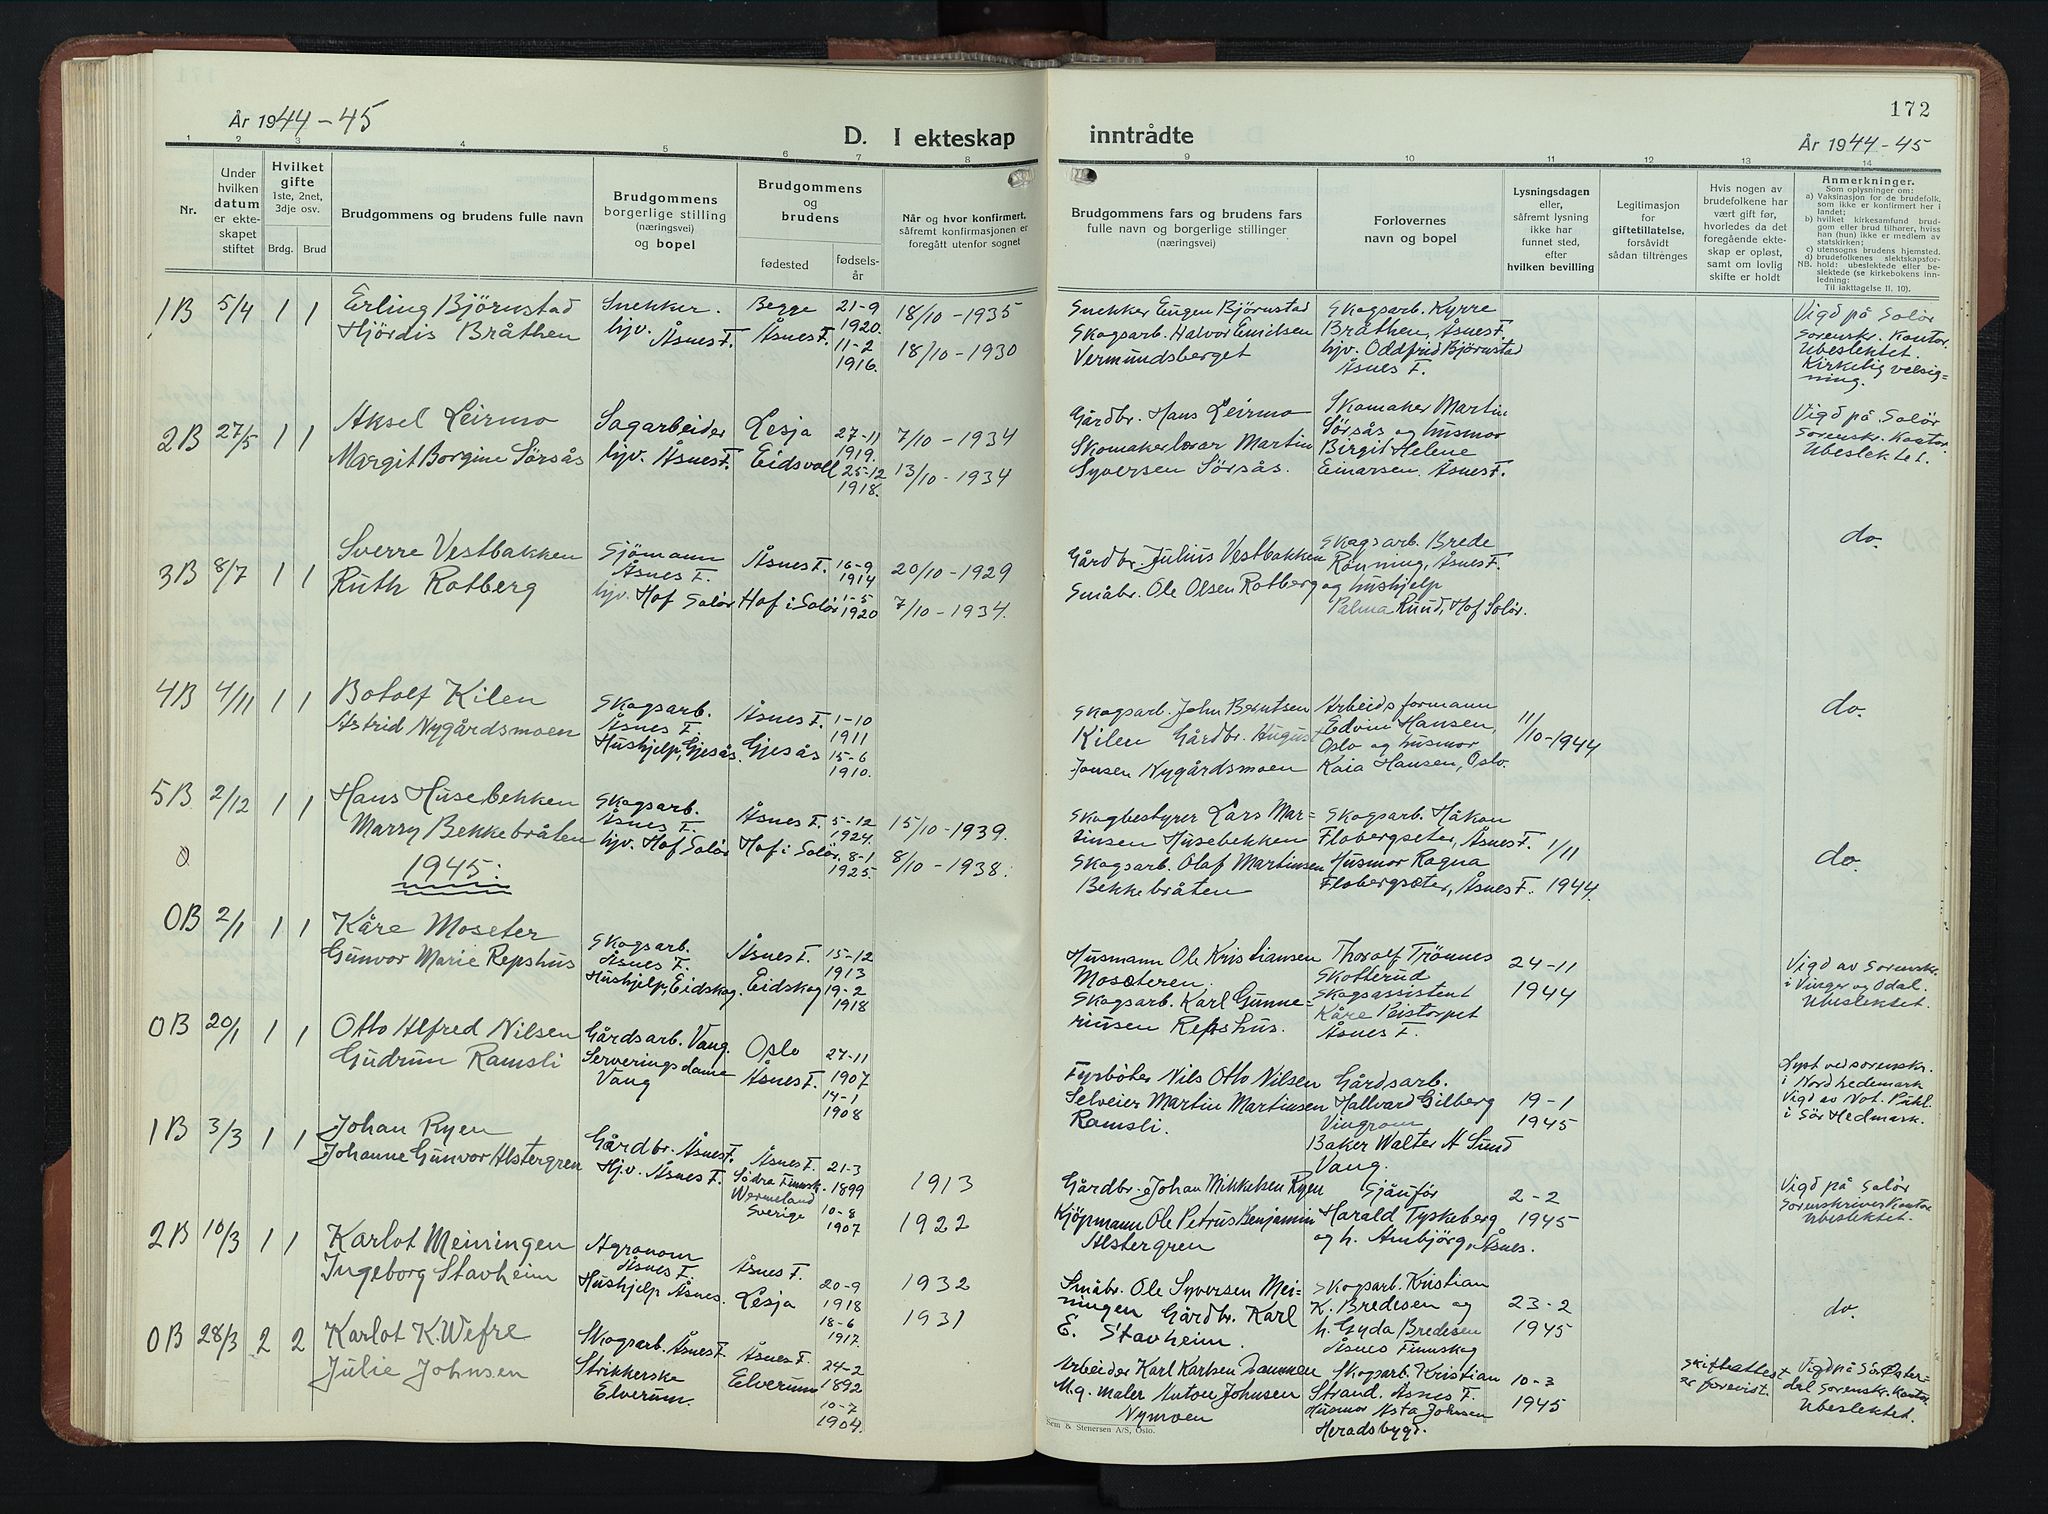 172
År 1944-45
D. I ekteskap
inntrådte
År 1944-45
1 2 3 4 5 6 7 8 9 10 11 12 13 14
Nr.
Under
hvilken
datum
er ekte-
skapet
stiftet
Hvilket
gifte
1ste, 2net,
3dje osv.
Brdg. Brud
Brudgommens og brudens fulle navn
Brudgommens
borgerlige stilling
(næringsvei)
og bopel
Brudgommens
og
brudens
fødested
fødsels-
år
Når og hvor konfirmert,
såfremt konfirmasjonen er
foregått utenfor sognet
Brudgommens fars og brudens fars
fulle navn og borgerlige stillinger
(næringsvei)
Forlovernes
navn og bopel
Lysningsdagen
eller,
såfremt lysning
ikke har
funnet sted,
efter
hvilken bevilling
Legitimasjon
for
giftetillatelse,
forsåvidt
sådan tiltrenges
Hvis nogen av
brudefolkene har
vært gift før,
hvorledes da det
foregående ekte-
skap er opløst,
samt om lovlig
skifte er holdt
Anmerkninger.
Som oplysninger om:
a) Vaksinasjon for de brudefolk,
som ikke er konfirmert her i
landet;
b) hvilket kirkesamfund brud-
gom eller brud tilhører, hviss
han (hun) ikke er medlem av
statskirken;
c) utensogns brudens hjemsted.
d) brudefolkenes slektskapsfor-
NB. hold: ubeslektede eller be-
slektede (se kirkebokens inn-
ledning:
Til iakttagelse II, 10).
1B 5/4 1 1
Erling Björnstad
Hjördis Bråthen
Snekker.
hjv. Åsnes F.
Begge
Åsnes F.
21-9
1920.
11-2
1916.
18/10-1935
18/10-1930
Snekker Eugen Björnstad
Skogsarb. Halvor Emilsen
Vermundsberget
Skogsarb. Kyrre
Bråthen, Åsnes F.
hjv. Oddfrid Björnstad
Åsnes F.
Vigd på Solör
Sorenskr. Kontor.
Ubeslektet.
Kirkelig velsig=
ning.
2B 27/5 1 1
Aksel Leirmo
Margit Borgine Sörsås
Sagarbeider
hjv. Åsnes F.
Lesja
Eidsvoll
27-11
1919.
25-12
1918.
7/10-1934
13/10-1934
Gårdbr. Hans Leirmo
Skomakerlærar Martin
Syversen Sörsås.
Skomaker Martin
Sörsås og husmor
Birgit Helene
Einarsen. Åsnes F.
Vigd på Solör
Sorenskr. Kontor
Ubeslektet.
3B 8/7 1 1
Sverre Vestbakken
Ruth Rotberg
Sjömann
Åsnes F.
hjv. Hof Solör
Åsnes F.
Hof i Solör
16-9
1914
1-5
1920
20/10-1929
7/10-1934.
Gårdbr. Julius Vestbakken
Småbr. Ole Olsen Rotberg
Skogsarb. Brede
Rönning, Åsnes F.
og hushjelp
Palma Ruud, Hof Solör.
do.
4B 4/11 1 1
Botolf Kilen
Astrid Nygårdsmoen
Skogsarb.
Åsnes F.
Hushjelp, Gjesås.
Åsnes F.
Gjesås
1-10
1911
15-6
1910.
Skogsarb. John Berntsen
Kilen Gårdbr. August
Jonsen Nygårdsmoen
Arbeids formann
Edvin Hansen,
Oslo og husmor
Kaia Hansen, Oslo.
11/10-1944
do.
5B 2/12 1 1
Hans Husebekken
Marry Bekkebråten
Skogsarb.
Åsnes F.
hjv. Hof Solör
Åsnes F.
Hof i Solör.
5-12
1924.
8-1
1925.
15/10-1939.
8/10-1938.
Skogbestyrer Lars Mar=
tinsen Husebekken
Skogsarb. Olaf Martinsen
Bekkebråten
Skogsarb. Håkon
Flobergseter, Åsnes F.
Husmor Ragna
Flobergsæter, Åsnes F.
1/11
1944.
do.
0
1945:
0B 2/1 1 1
Kåre Moseter
Gunvor Marie Repshus
Skogsarb.
Åsnes F.
Hushjelp, Eidskog.
Åsnes F.
Eidskog
15-12
1913
19-2
1918
Husmann Ole Kristiansen
Mosæteren.
Skogsarb. Karl Gunne=
riusen Repshus.
Thoralf Trönnes
Skotterud
Skogsassistent
Kåre Peistorpet
Åsnes F.
24-11
1944
Vigd av Sorenskr.
i Vinger og Odal.
Ubeslektet.
0B 20/1 1 1
Otto Alfred Nilsen
Gudrun Ramsli
Gårdsarb. Vang.
Serveringsdame
Vang
Oslo
Åsnes F.
27-11
1907
14-1
1908
Fyrböter Nils Otto Nilsen
Selveier Martin Martinsen
Ramsli.
Gårdsarb.
Hallvard Gilberg
Vingrom
Baker Walter A Sund
Vang.
19-1
1945
Lyst ved sorenskr.
i Nord hedemark
Vigd av Not. Publ.
i Sör Hedmark.
1B 3/3 1 1
Johan Ryen
Johanne Gunvor Alstergren
Gårdbr. Åsnes F.
Hjv. Åsnes F.
Åsnes F.
Södra Finnsk.
Wermeland
Sverige
21-3
1899
10-8
1907
1913
1922
Gårdbr. Johan Mikkelsen Ryen
Kjöpmann Ole Petrus Benjamin
Alstergren
Sjåuför
Harald Tyskeberg
og h. Ambjörg, Åsnes.
2-2
1945
Vigd på Solör
Sorenskriver Kontor
Ubeslektet.
2B 10/3 1 1
Karlot Meiningen
Ingeborg Stavheim
Agronom
Åsnes F.
Hushjelp Åsnes.
Åsnes F.
Lesja
20-9
1918
18-6
1917.
1932
1931
Småbr. Ole Syversen Mei-
ningen Gårdbr. Karl
E. Stavheim.
Skogsarb. Kristian
K. Bredesen og
h. Gyda Bredesen
Åsnes Finnskog
23-2
1945
do.
0B 28/3 2 2
Karlot K. Wefre
Julie Johnsen
Skogsarb. Åsnes F.
Strikkerske
Elverum.
Åsnes F.
Elverum
24-2
1892
10-7
1904.
Arbeider Karl Karlsen
M.g. maler Anton Johnsen
Nymoen
Skogsarb. Kristian
Strand. Åsnes F.
Husmor Asta Johnsen
Heradsbygd.
10-3
1945
Skifteattest
er forevist.
Vigd på Sör Öster=
dal Sorenskr. Kontor
Ubeslektet.
Sem & Stenersen A/S, Oslo.